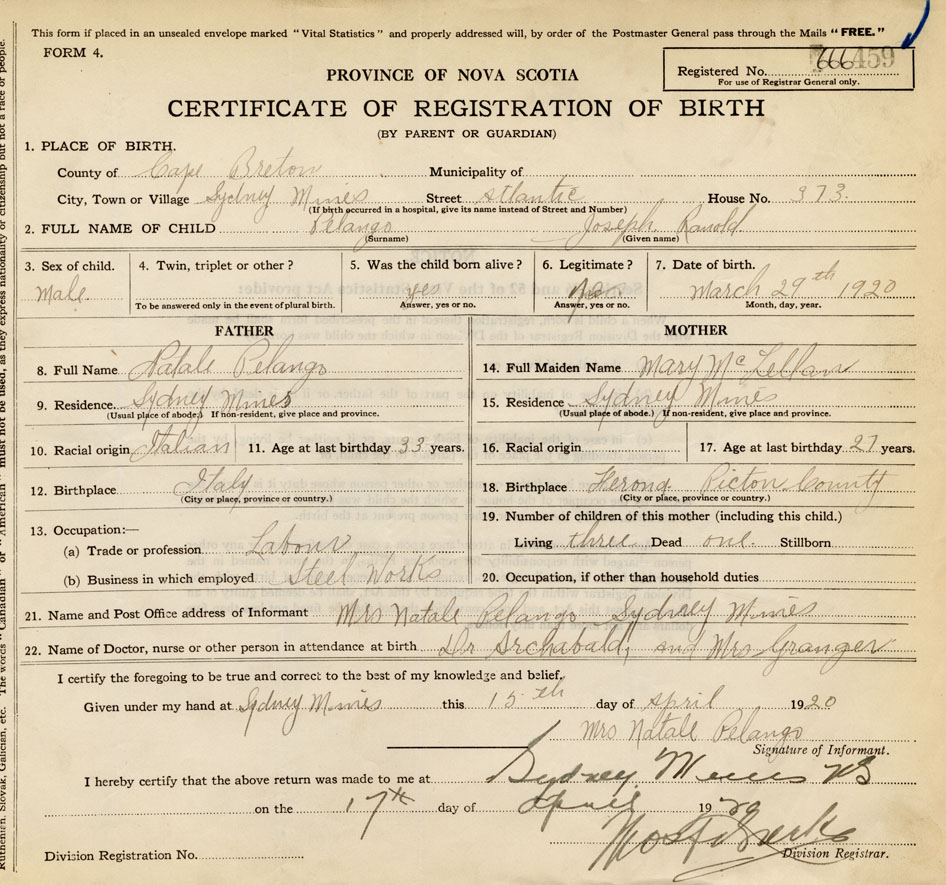 This form if placed in an unsealed envelope marked "Vital Statistics" and properly addressed will, by order of the Postmaster General pass through the Mails "FREE."
FORM 4.
Registered No. 459
For use of Registrar General only.
PROVINCE OF NOVA SCOTIA
CERTIFICATE OF REGISTRATION OF BIRTH
(BY PARENT OR GUARDIAN)
1. PLACE OF BIRTH.
County of Cape Breton Municipality of
City, Town or Village Sydney Mines Street Atlantic House No. 373.
(If birth occurred in a hospital, give its name instead of Street and Number)
2. FULL NAME OF CHILD Pelango Joseph Ranold
(Surname) (Given name)
3. Sex of child. 4. Twin, triplet or other? 5. Was the child born alive? 6. Legitimate? 7. Date of birth.
Male yes March 29th 1920
To be answered only in the event of plural birth. Answer, yes or no. Answer, yes or no. Month, day, year.
FATHER
8. Full Name Natale Pelango
9. Residence. Sydney Mines
(Usual place of abode.) If non-resident, give place and province.
10. Racial origin Italian 11. Age at last birthday 33 years.
12. Birthplace Italy
(City or place, province or country.)
13. Occupation:—
(a) Trade or profession Labour
(b) Business in which employed Steel Works
MOTHER
14. Full Maiden Name Mary McLellan
15. Residence Sydney Mines
(Usual place of abode.) If non-resident, give place and province.
16. Racial origin 17. Age at last birthday 27 years.
18. Birthplace Pictou County
(City or place, province or country.)
19. Number of children of this mother (including this child.)
Living three Dead one Stillborn
20. Occupation, if other than household duties
21. Name and Post Office address of Informant Mrs Natale Pelango Sydney Mines
22. Name of Doctor, nurse or other person in attendance at birth Dr Archabald, and Mrs Granger
I certify the foregoing to be true and correct to the best of my knowledge and belief.
Given under my hand at Sydney Mines this 15th day of April 1920
Mrs Natale Pelango
Signature of Informant.
I hereby certify that the above return was made to me at Sydney Mines NS
on the 17th day of April 1920
Division Registrar.
Division Registration No.